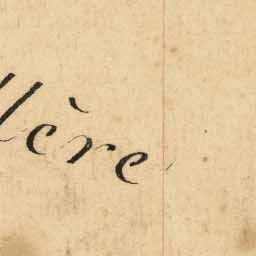 lère